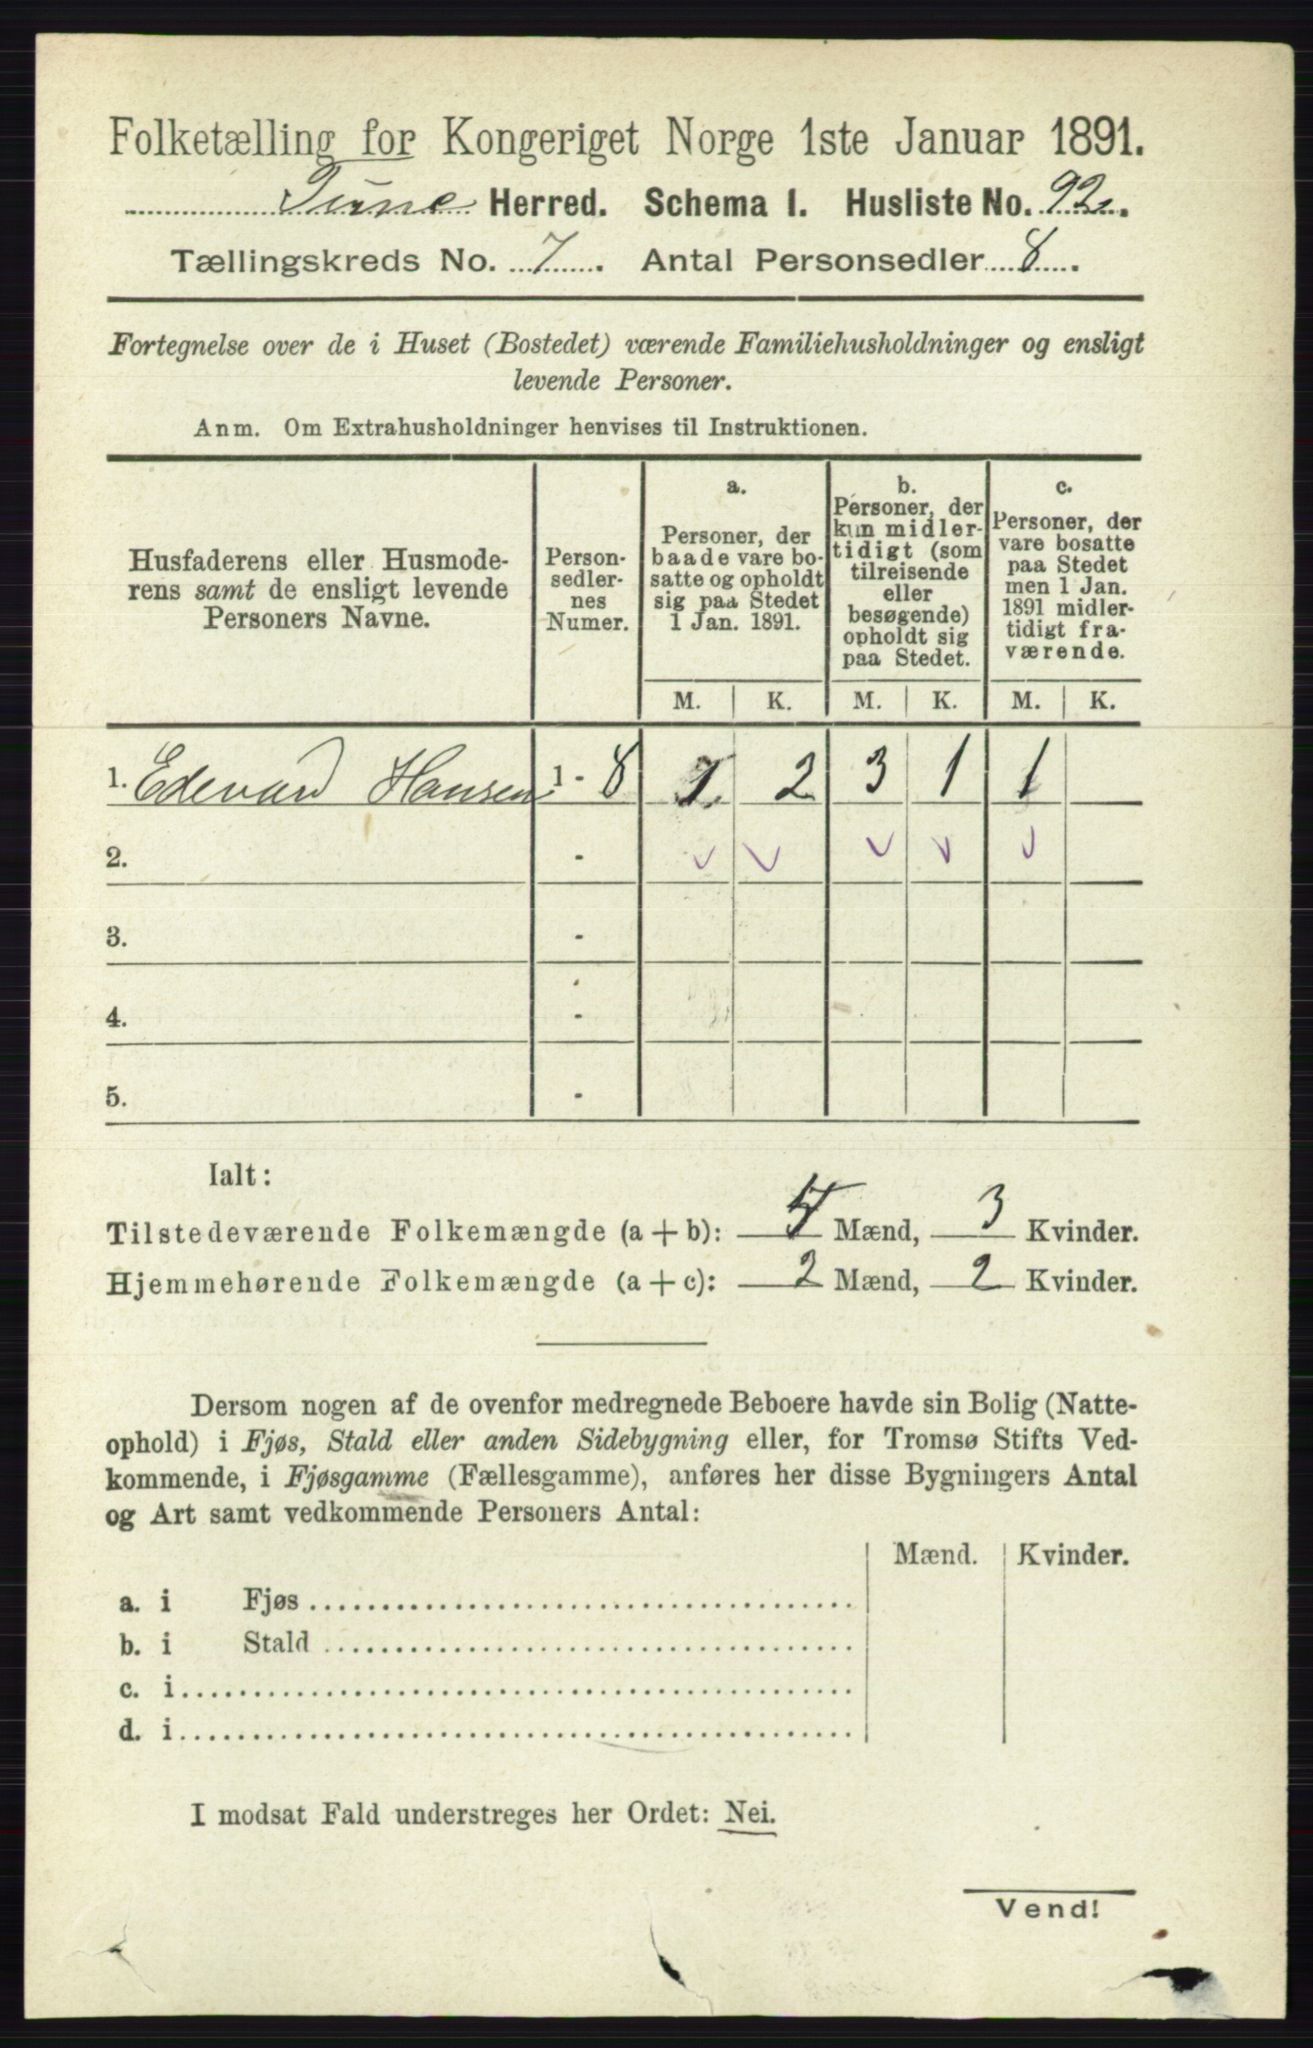 Folketælling for Kongeriget Norge 1ste Januar 1891.
Tune Herred. Schema I. Husliste No. 92.
Tællingskreds No. 7. Antal Personsedler 8.
Fortegnelse over de i Huset (Bostedet) værende Familiehusholdninger og ensligt
levende Personer.
Anm. Om Extrahusholdninger henvises til Instruktionen.
Husfaderens eller Husmode-
rens samt de ensligt levende
Personers Navne.
Person-
sedler-
nes
Numer.
a.
Personer, der
baade vare bo-
satte og opholdt
sig paa Stedet
1 Jan. 1891.
b.
Personer, der
kun midler-
tidigt (som
tilreisende
eller
besøgende)
opholdt sig
paa Stedet.
c.
Personer, der
vare bosatte
paa Stedet
men 1 Jan.
1891 midler-
tidigt fra-
værende.
M. K. M. K. M. K.
1. Edevard Hansen 1 - 8 1 2 3 1 1
2. -
3. -
4. -
5. -
Ialt:
Tilstedeværende Folkemængde (a + b): 4 Mænd, 3 Kvinder.
Hjemmehørende Folkemængde (a + c): 2 Mænd, 2 Kvinder.
Dersom nogen af de ovenfor medregnede Beboere havde sin Bolig (Natte-
ophold) i Fjøs, Stald eller anden Sidebygning eller, for Tromsø Stifts Ved-
kommende, i Fjøsgamme (Fællesgamme), anføres her disse Bygningers Antal
og Art samt vedkommende Personers Antal:
Mænd. Kvinder.
a. i Fjøs
b. i Stald
c. i
d. i
I modsat Fald understreges her Ordet: Nei.
Vend!